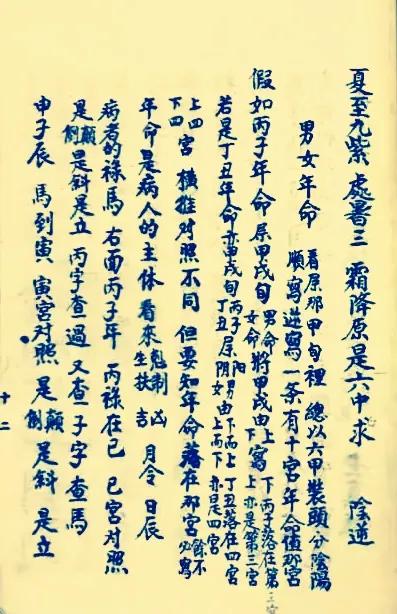 夏至九紫 處暑三 霜降原是六中求 陰逆
男女年命 看屋那甲旬裡 總以六甲裝頭 分陰陽
順寫逆寫一條有十宮年命值那宮
假如丙子年命 屬甲戌旬 男命將甲戌由上
女命 下寫上 下丙子落在第三宮
亦是第三宮
若是丁丑年命亦甲戌旬 丙子陽男由下而上 丁丑落在四宮
丁丑屬陰女 上而下亦是四宮
上四
下四 宮 橫推對照不同 但要知年命落在那宮 餘不必寫
年命是病人的主体 看來 尅制 凶 月令 日辰
生扶 吉
病者的祿馬 右面丙子年 丙祿在巳 巳宮對照
是顛倒 是斜是立 丙字查過 又查子字 查馬
申子辰 馬到寅 寅宮對照 是顛倒 是斜 是立
十二